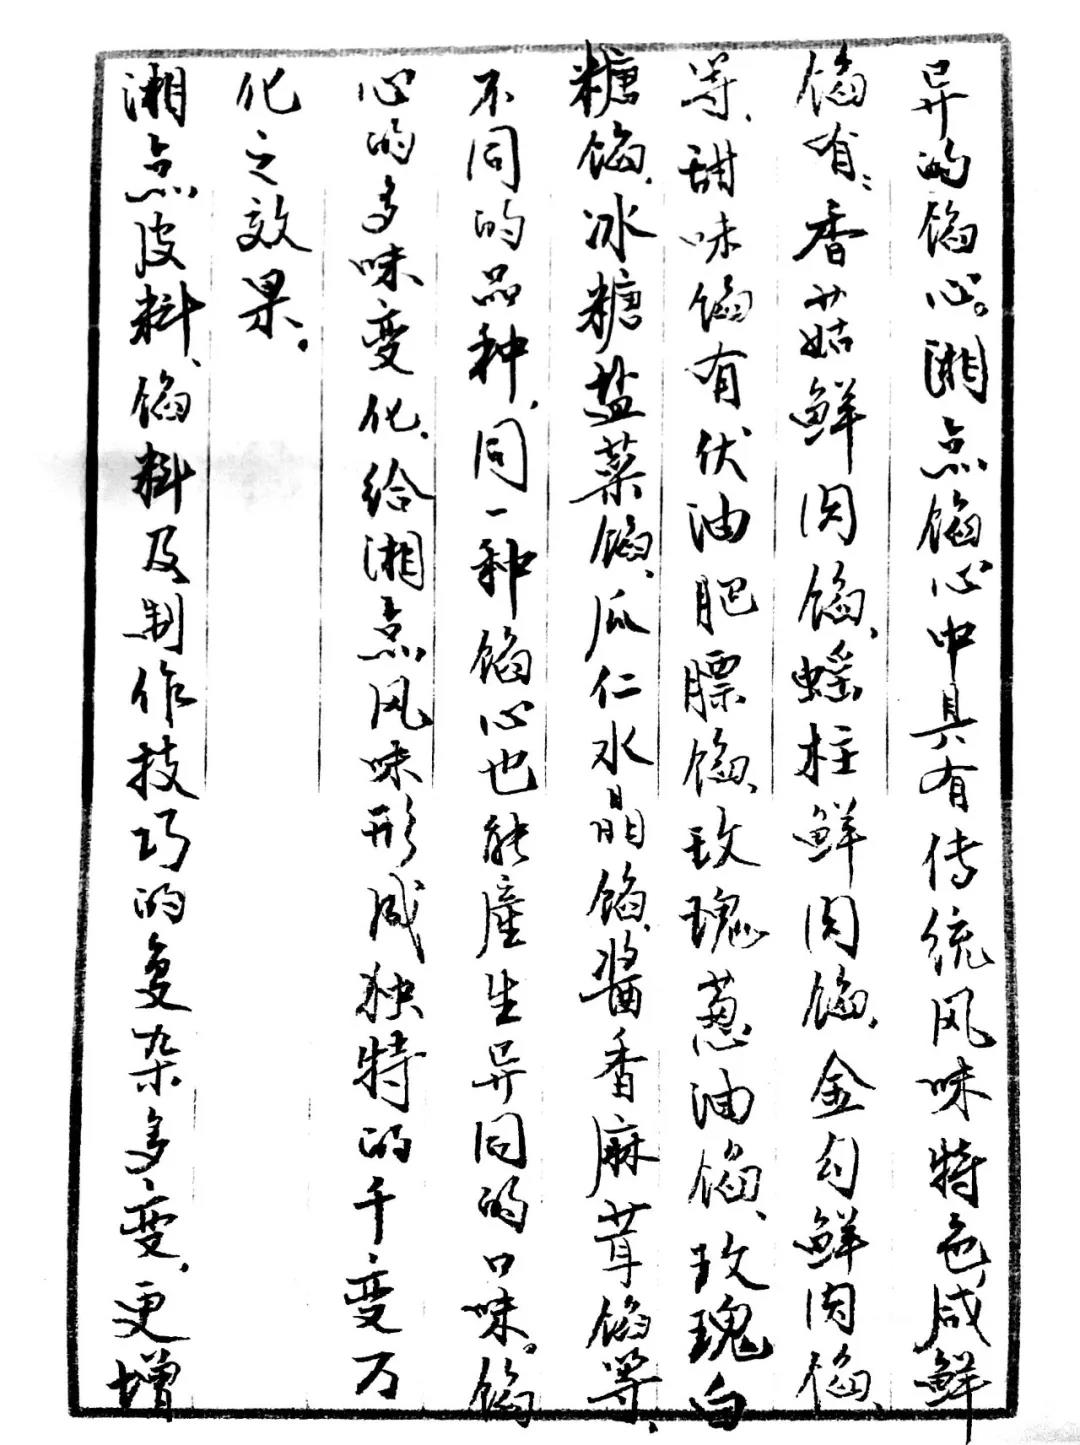 异的馅心。湘点馅心中具有传统风味特色,咸鲜
馅有:香菇鲜肉馅、蛏柱鲜肉馅、金勾鲜肉馅、
等、甜味馅有伏油肥膘馅、玫瑰葱油馅、玫瑰白
糖馅、冰糖盐菜馅、瓜仁水晶馅、醬香麻茸馅等、
不同的品种,同一种馅心也能產生异同的口味。馅
心的多味变化,给湘点风味形成独特的千变万
化之效果。
湘点皮料、馅料及制作技巧的复杂多变,更增